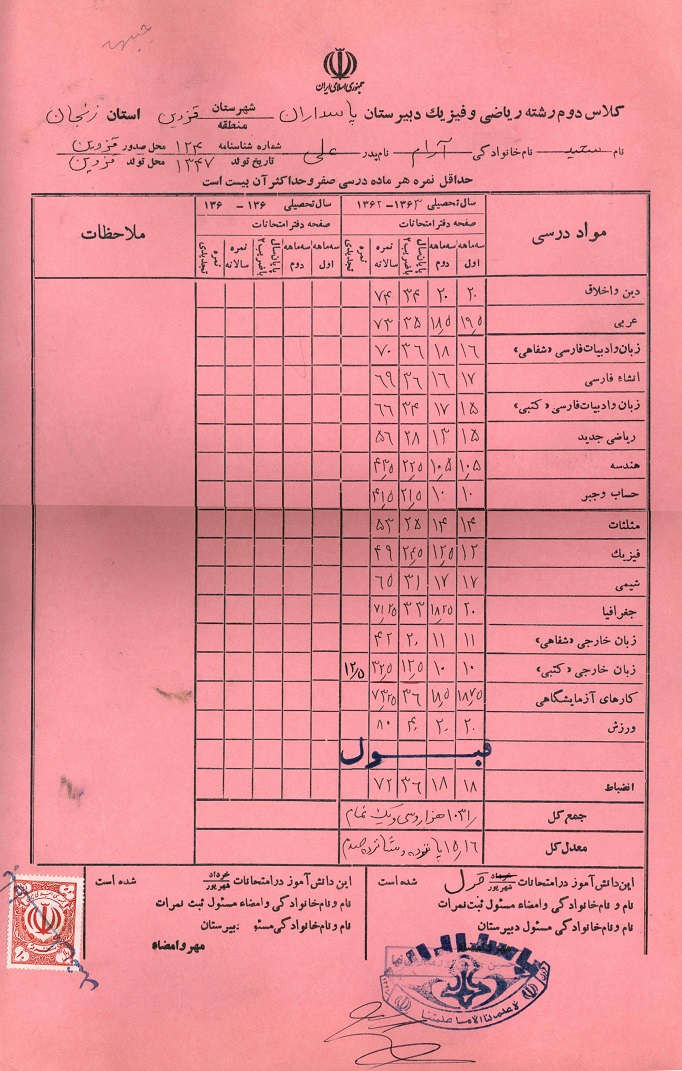 جبهه
جمهوری اسلامی ایران
کلاس دوم رشته ریاضی و فیزیک دبیرستان پاسداران شهرستان منطقه قزوین استان زنجان
نام سعید نام خانوادگی آرام نام پدر علی شماره شناسنامه ۱۲۴ محل صدور قزوین
تاریخ تولد ۱۳۴۷ محل تولد قزوین
حداقل نمره هر ماده درسی صفر و حداکثر آن بیست است
مواد درسی سال تحصیلی ۱۳۶۳ - ۱۳۶۲ سال تحصیلی ۱۳۶ - ۱۳۶ ملاحظات
صفحه دفتر امتحانات صفحه دفتر امتحانات
سه ماهه اول سه ماهه دوم پایان سال با ضریب ۲ نمره سالانه نمره تجدیدی سه ماهه اول سه ماهه دوم پایان سال با ضریب ۲ نمره سالانه نمره تجدیدی
دین و اخلاق ۲۰ ۲۰ ۳۴ ۷۴
عربی ۱۹٫۵ ۱۸٫۵ ۳۵ ۷۳
زبان و ادبیات فارسی «شفاهی» ۱۶ ۱۸ ۳۶ ۷۰
انشاء فارسی ۱۷ ۱۶ ۳۶ ۶۹
زبان و ادبیات فارسی «کتبی» ۱۵ ۱۷ ۳۴ ۶۶
ریاضی جدید ۱۵ ۱۳ ۲۸ ۵۶
هندسه ۱۰٫۵ ۱۰٫۵ ۲۲٫۵ ۴۳٫۵
حساب و جبر ۱۰ ۱۰ ۲۱٫۵ ۴۱٫۵
مثلثات ۱۴ ۱۴ ۲۵ ۵۳
فیزیک ۱۲ ۱۲٫۵ ۲۴٫۵ ۴۹
شیمی ۱۷ ۱۷ ۳۱ ۶۵
جغرافیا ۲۰ ۱۸٫۲۵ ۳۳ ۷۱٫۲۵
زبان خارجی «شفاهی» ۱۱ ۱۱ ۲۰ ۴۲
زبان خارجی «کتبی» ۱۰ ۱۰ ۱۲٫۵ ۳۲٫۵ ۱۲٫۵
کارهای آزمایشگاهی ۱۸٫۷۵ ۱۸٫۵ ۳۶ ۷۳٫۲۵
ورزش ۲۰ ۲۰ ۴۰ ۸۰
قبول
انضباط ۱۸ ۱۸ ۳۶ ۷۲
جمع کل ۱۰۳۱ هزار و سی و یک تمام
معدل کل ۱۵٫۱۶ پانزده و شانزده صدم
این دانش آموز در امتحانات خرداد شهریور قبول شده است این دانش آموز در امتحانات خرداد شهریور شده است
نام و نام خانوادگی و امضاء مسئول ثبت نمرات نام و نام خانوادگی و امضاء مسئول ثبت نمرات
نام و نام خانوادگی مسئول دبیرستان نام و نام خانوادگی مسئول دبیرستان
مهر و امضاء
پاسداران